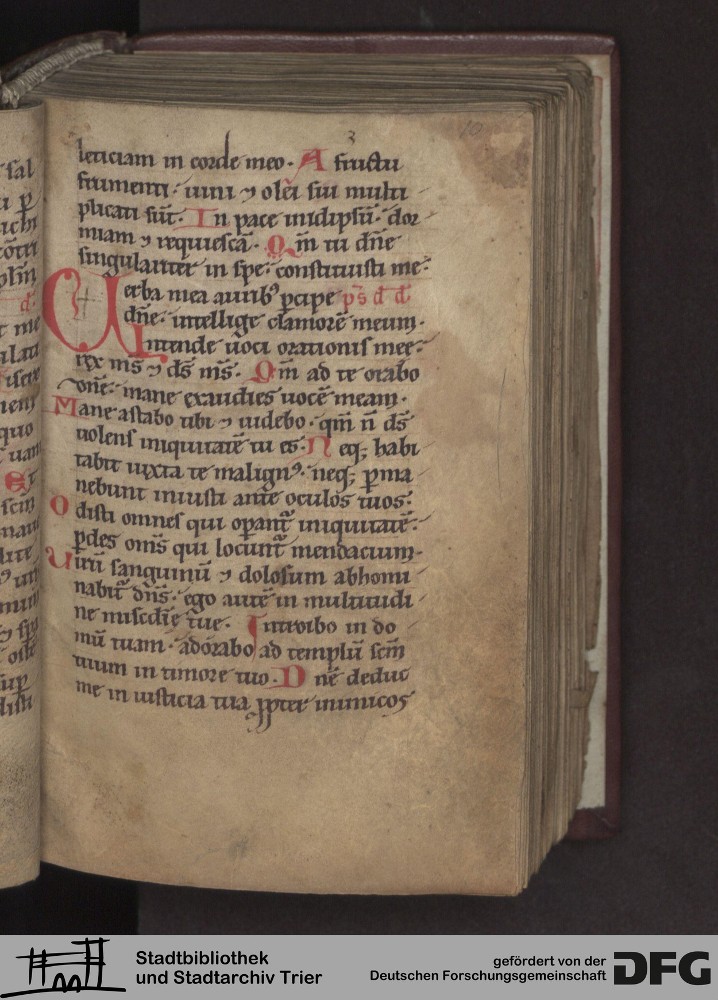 10
leticiam in corde meo. A fructu
frumenti: uini ⁊ olei sui multi
plicati sūt. In pace inidipsū. dor
miam ⁊ requiescā. Qm̄ tu dn̄e
singulariter in spe: constituisti me.
Uerba mea aurib⁹ ꝑcipe ps̄ d d
dn̄e: intellige clamorē meum.
Intende uoci orationis mee:
rex ms̄ ⁊ ds̄ ms̄. Qm̄ ad te orabo
dn̄e: mane exaudies uocē meam.
Mane astabo tibi ⁊ uidebo. qm̄ n̄ ds̄
uolens iniquitatē tu es. Neq; habi
tabit iuxta te malign⁹. neq; ꝑma
nebunt iniusti ante oculos tuos:
Odisti omnes qui oꝑant᷑ iniquitatē.
ꝑdes om̄s qui locunt᷑ mendacium.
Uirū sanguinū ⁊ dolosum abhomi
nabit᷑ dn̄s. ego autē in multitudi
ne miscdīe tue. Introibo in do
mū tuam. adorabo ad templū scm̄
tuum in timore tuo. Dn̄e deduc
me in iusticia tua ꝓpter inimicos
Stadtbibliothek
und Stadtarchiv Trier
gefördert von der
Deutschen Forschungsgemeinschaft
DFG